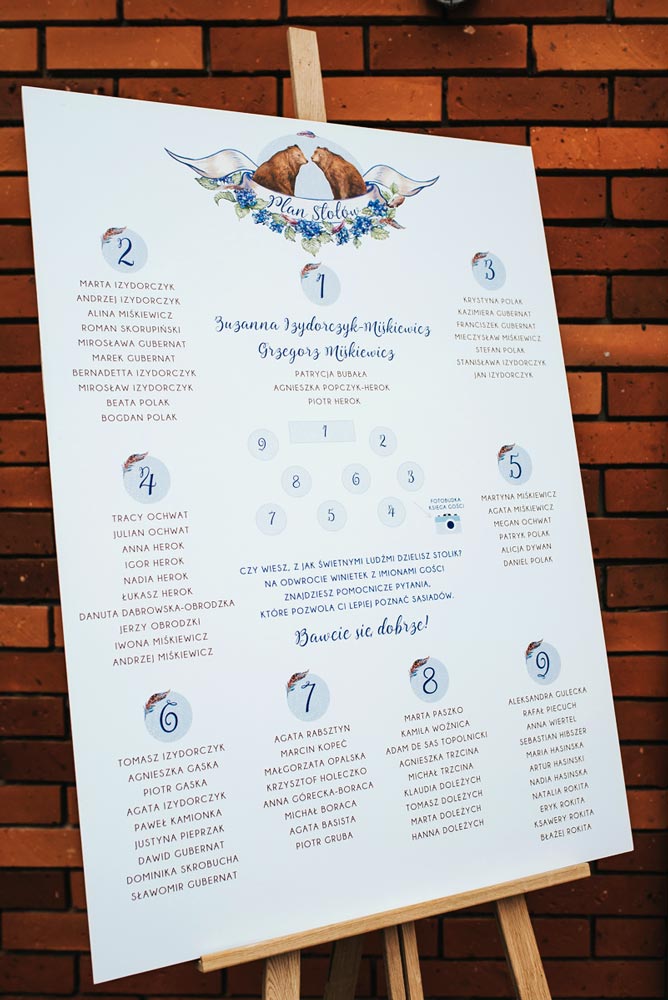 Plan Stołów
2
MARTA IZYDORCZYK
ANDRZEJ IZYDORCZYK
ALINA MIŚKIEWICZ
ROMAN SKORUPIŃSKI
MIROSŁAWA GUBERNAT
MAREK GUBERNAT
BERNADETTA IZYDORCZYK
MIROSŁAW IZYDORCZYK
BEATA POLAK
BOGDAN POLAK
1
Zuzanna Izydorczyk-Miśkiewicz
Grzegorz Miśkiewicz
PATRYCJA BUBAŁA
AGNIESZKA POPCZYK-HEROK
PIOTR HEROK
3
KRYSTYNA POLAK
KAZIMIERA GUBERNAT
FRANCISZEK GUBERNAT
MIECZYSŁAW MIŚKIEWICZ
STEFAN POLAK
STANISŁAWA IZYDORCZYK
JAN IZYDORCZYK
9 1 2
8 6 3
7 5 4
FOTOBUDKA
KSIĘGA GOŚCI
4
TRACY OCHWAT
JULIAN OCHWAT
ANNA HEROK
IGOR HEROK
NADIA HEROK
ŁUKASZ HEROK
DANUTA DĄBROWSKA-OBRODZKA
JERZY OBRODZKI
IWONA MIŚKIEWICZ
ANDRZEJ MIŚKIEWICZ
5
MARTYNA MIŚKIEWICZ
AGATA MIŚKIEWICZ
MEGAN OCHWAT
PATRYK POLAK
ALICJA DYWAN
DANIEL POLAK
CZY WIESZ, Z JAK ŚWIETNYMI LUDŹMI DZIELISZ STOLIK?
NA ODWROCIE WINIETEK Z IMIONAMI GOŚCI
ZNAJDZIESZ POMOCNICZE PYTANIA,
KTÓRE POZWOLĄ CI LEPIEJ POZNAĆ SĄSIADÓW.
Bawcie się dobrze!
6
TOMASZ IZYDORCZYK
AGNIESZKA GĄSKA
PIOTR GĄSKA
AGATA IZYDORCZYK
PAWEŁ KAMIONKA
JUSTYNA PIEPRZAK
DAWID GUBERNAT
DOMINIKA SKROBUCHA
SŁAWOMIR GUBERNAT
7
AGATA RABSZTYN
MARCIN KOPEĆ
MAŁGORZATA OPALSKA
KRZYSZTOF HOLECZKO
ANNA GÓRECKA-BORACA
MICHAŁ BORACA
AGATA BASISTA
PIOTR GRUBA
8
MARTA PASZKO
KAMILA WOŹNICA
ADAM DE SAS TOPOLNICKI
AGNIESZKA TRZCINA
MICHAŁ TRZCINA
KLAUDIA DOLEŻYCH
TOMASZ DOLEŻYCH
MARTA DOLEŻYCH
HANNA DOLEŻYCH
9
ALEKSANDRA GULECKA
RAFAŁ PIECUCH
ANNA WIERTEL
SEBASTIAN HIBSZER
MARIA HASIŃSKA
ARTUR HASIŃSKI
NADIA HASIŃSKA
NATALIA ROKITA
ERYK ROKITA
KSAWERY ROKITA
BŁAŻEJ ROKITA